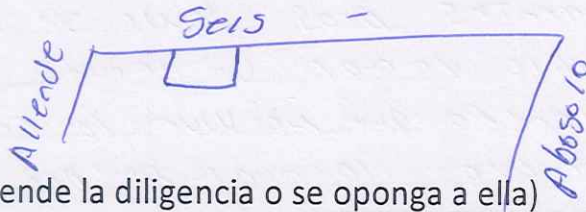 Seis
Allende
Abasolo
ende la diligencia o se oponga a ella)